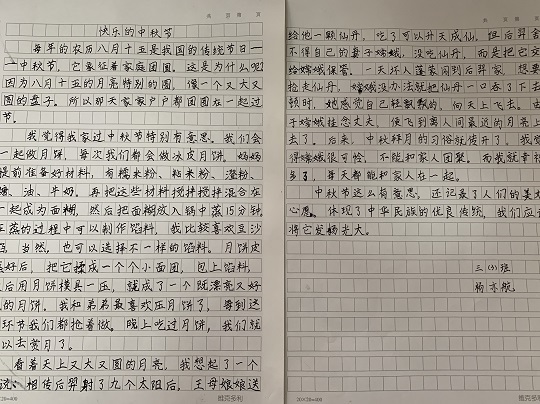 快乐的中秋节
每年的农历八月十五是我国的传统节日一
一中秋节，它象征着家庭团圆。这是为什么呢
因为八月十五的月亮特别的圆，像一个又大又
圆的盘子。所以那天家家户户都团圆在一起过
节。
我觉得我家过中秋节特别有意思。我们会
一起做月饼，每次我们都会做冰皮月饼。妈妈
提前准备好材料，有糯米粉、粘米粉、澄粉、
糖、油、牛奶。再把这些材料搅拌搅拌混合在
一起成为面糊，然后把面糊放入锅中蒸15分钟，
在蒸的过程中可以制作馅料，我比较喜欢豆沙
当然，也可以选择不一样的馅料。月饼皮
蒸好后，把它揉成一个个小面团，包上馅料，
后用月饼模具一压，就成了一个既漂亮又好
的月饼。我和弟弟最喜欢压月饼了，每到这
环节我们都抢着做。晚上吃过月饼，我们就
以去赏月了。
看着天上又大又圆的月亮，我想起了一个
说：相传后羿射了九个太阳后，王母娘娘送
20×20=400
维克多利
给他一颗仙丹，吃了可以升天成仙，但后羿舍
不得自己的妻子嫦娥，没吃仙丹，而是把它交
给嫦娥保管。一天坏人蓬蒙闯到后羿家，想要
抢走仙丹，嫦娥没办法就把仙丹一口吞了下去
顿时，她感觉自己轻飘飘的，向天上飞去。由
于嫦娥挂念丈夫，便飞到离人间最近的月亮上
去了。后来，中秋拜月的习俗就传开了。我觉
得嫦娥很可怜，不能和家人团聚。而我就幸福
多了，每天都能和家人在一起。
中秋节这么有意思，还记录了人们的美好
心愿，体现了中华民族的优良传统，我们应该
将它发扬光大。
三（3）班
杨亦航
20×20=400
维克多利